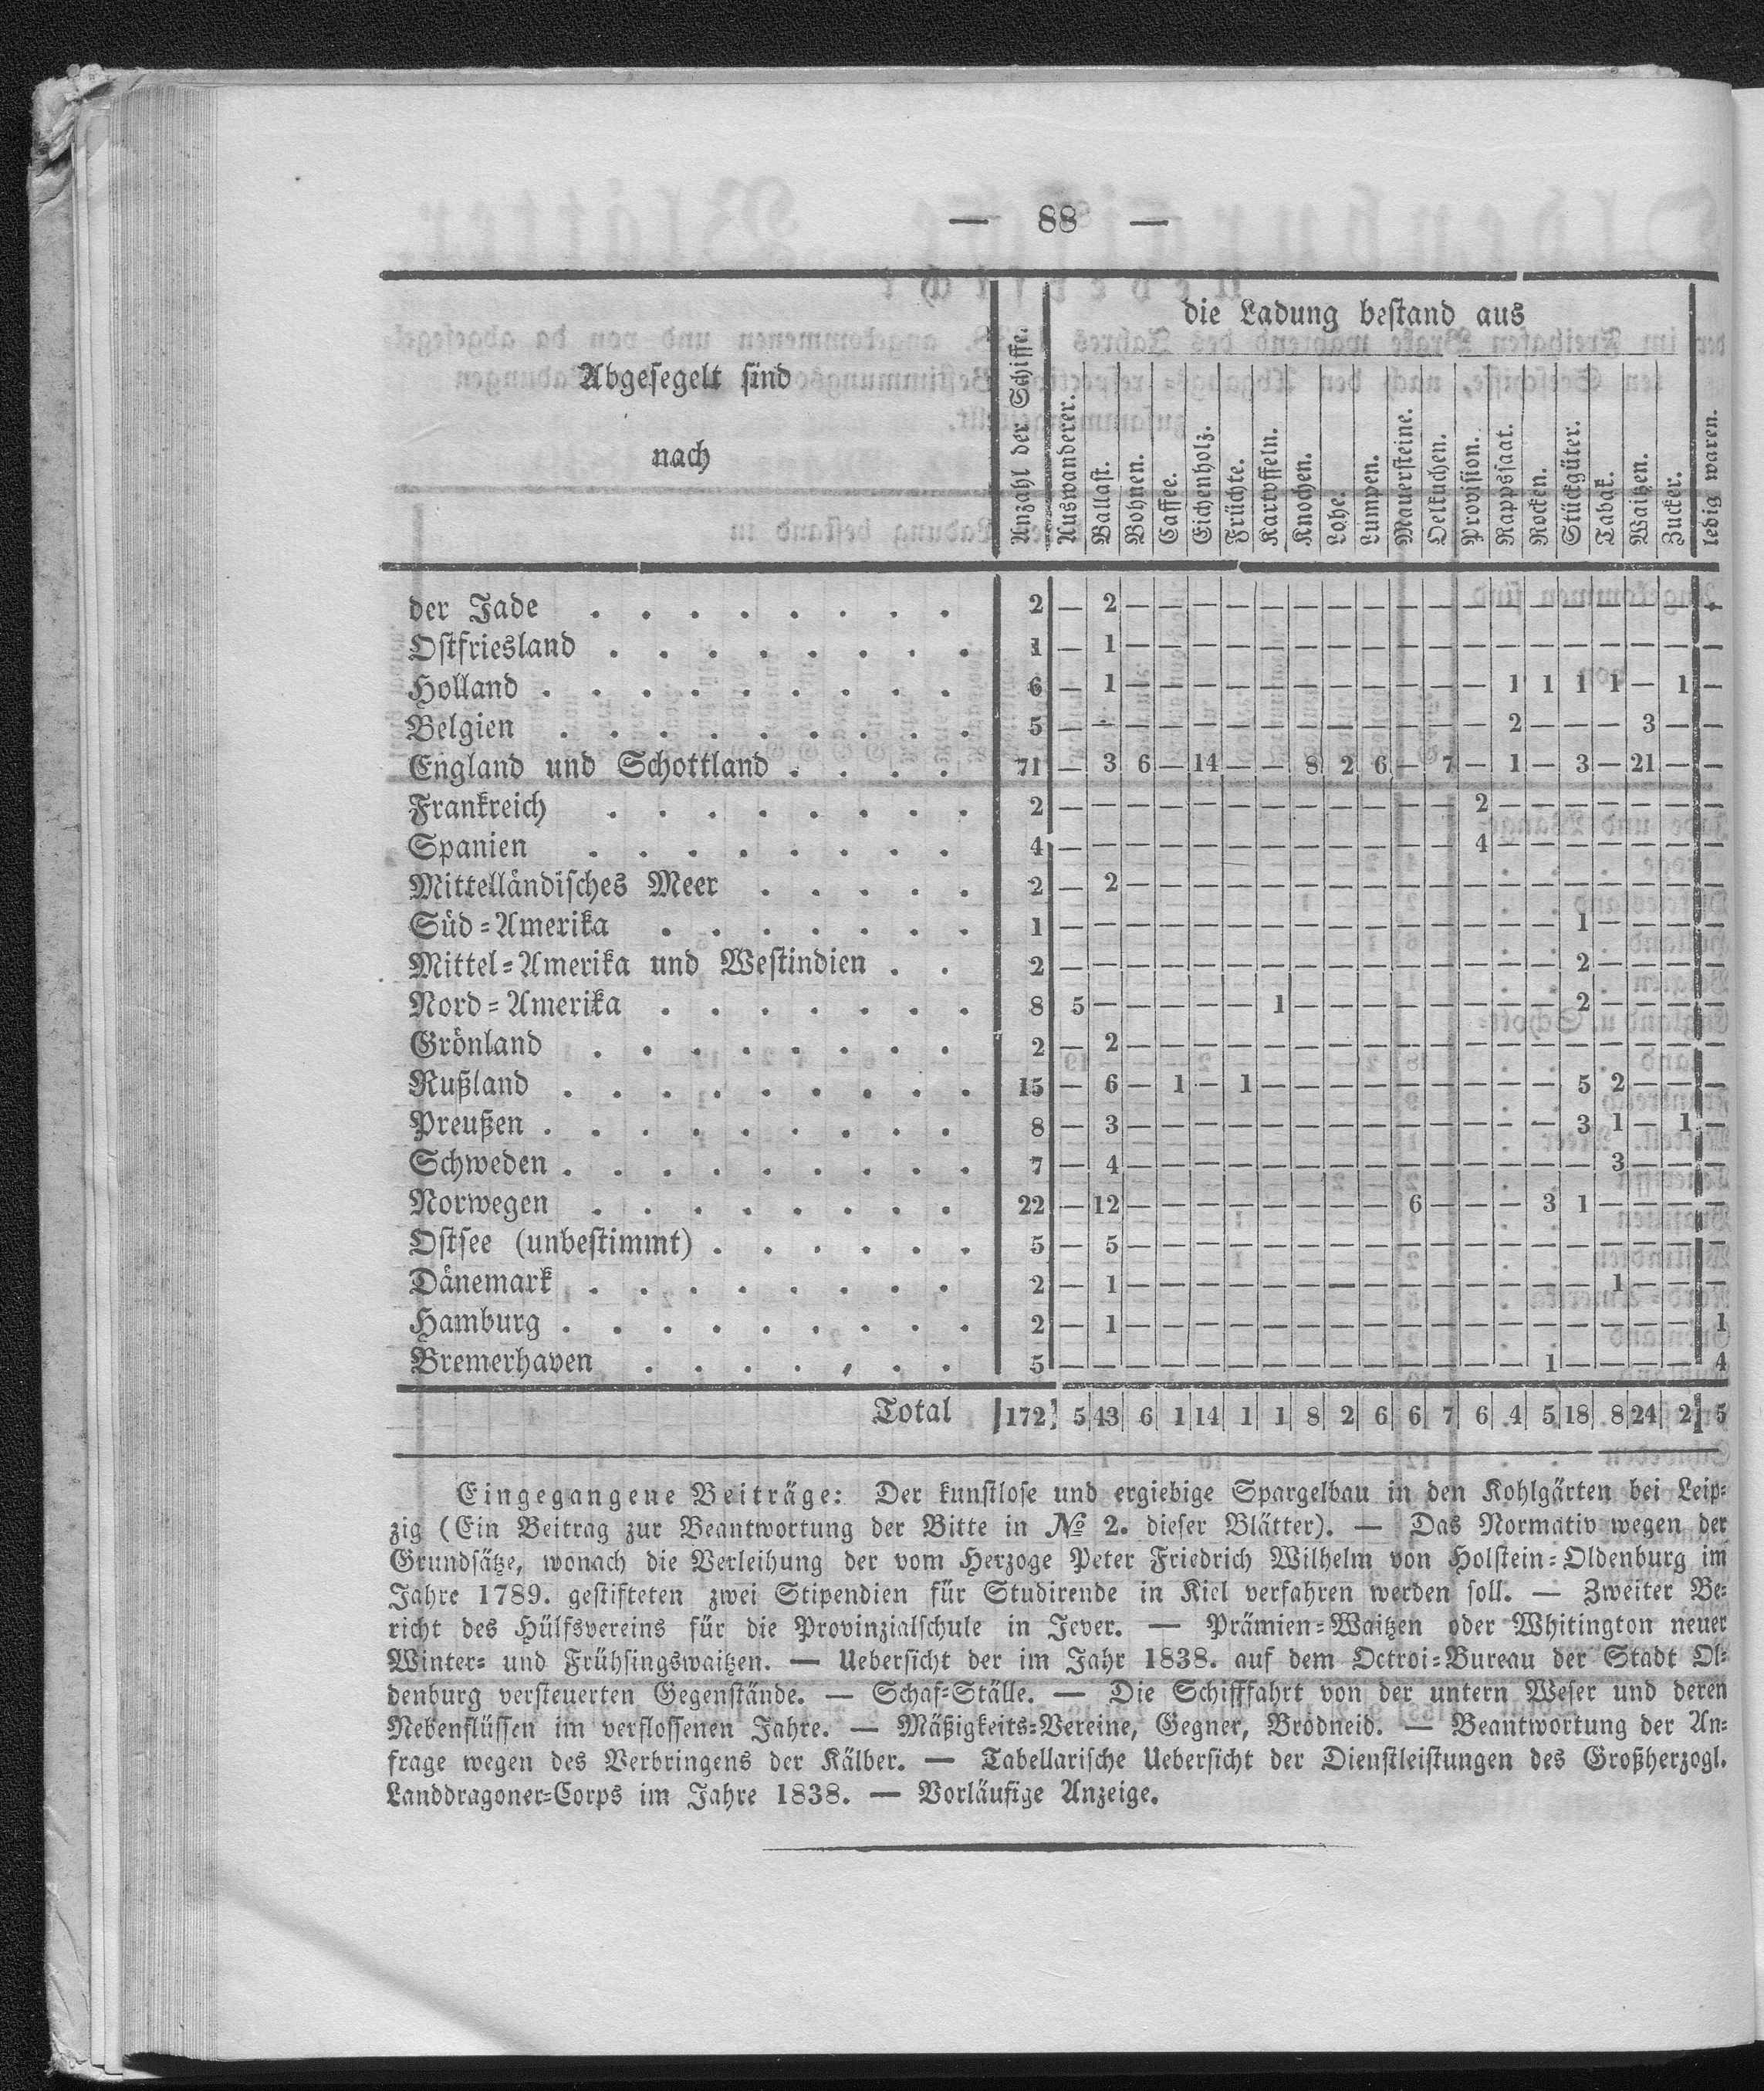 — 88 —
die Ladung bestand aus
Abgesegelt sind
nach
Anzahl der Schiffe.
Auswanderer.
Ballast.
Bohnen.
Caffee.
Eichenholz.
Früchte.
Kartoffeln.
Knochen.
Lohe.
Lumpen.
Mauersteine.
Oelkuchen.
Provision.
Rappsaat.
Rocken.
Stückgüter.
Tabak.
Waitzen.
Zucker.
ledig waren.
der Jade . . . . . . . . 2 — 2 — — — — — — — — — — — — — — — — — —
Ostfriesland . . . . . . . . 1 — 1 — — — — — — — — — — — — — — — — — —
Holland . . . . . . . . . 6 — 1 — — — — — — — — — — — 1 1 1 1 — 1 —
Belgien . . . . . . . . . 5 — — — — — — — — — — — — — 2 — — — 3 — —
England und Schottland . . . . 71 — 3 6 — 14 — — 8 2 6 — 7 — 1 — 3 — 21 — —
Frankreich . . . . . . . . 2 — — — — — — — — — — — — 2 — — — — — — —
Spanien . . . . . . . . 4 — — — — — — — — — — — — 4 — — — — — — —
Mittelländisches Meer . . . . . 2 — 2 — — — — — — — — — — — — — — — — — —
Süd=Amerika . . . . . . . 1 — — — — — — — — — — — — — — — 1 — — — —
Mittel=Amerika und Westindien . . 2 — — — — — — — — — — — — — — — 2 — — — —
Nord=Amerika . . . . . . . 8 5 — — — — — 1 — — — — — — — — 2 — — — —
Grönland . . . . . . . . 2 — 2 — — — — — — — — — — — — — — — — — —
Rußland . . . . . . . . . 15 — 6 — 1 — 1 — — — — — — — — — 5 2 — — —
Preußen . . . . . . . . . 8 — 3 — — — — — — — — — — — — — 3 1 — 1 —
Schweden . . . . . . . . . 7 — 4 — — — — — — — — — — — — — — 3 — — —
Norwegen . . . . . . . . 22 — 12 — — — — — — — — 6 — — — 3 1 — — — —
Ostsee (unbestimmt) . . . . . . 5 — 5 — — — — — — — — — — — — — — — — — —
Dänemark . . . . . . . . 2 — 1 — — — — — — — — — — — — — — 1 — — —
Hamburg . . . . . . . . . 2 — 1 — — — — — — — — — — — — — — — — — 1
Bremerhaven . . . . . . . 5 — — — — — — — — — — — — — — 1 — — — — 4
Total 172 5 43 6 1 14 1 1 8 2 6 6 7 6 4 5 18 8 24 2 5
Eingegangene Beiträge: Der kunstlose und ergiebige Spargelbau in den Kohlgärten bei Leip=
zig (Ein Beitrag zur Beantwortung der Bitte in № 2. dieser Blätter). — Das Normativ wegen der
Grundsätze, wonach die Verleihung der vom Herzoge Peter Friedrich Wilhelm von Holstein=Oldenburg im
Jahre 1789. gestifteten zwei Stipendien für Studirende in Kiel verfahren werden soll. — Zweiter Be=
richt des Hülfsvereins für die Provinzialschule in Jever. — Prämien=Waitzen oder Whitington neuer
Winter= und Frühsingswaitzen. — Uebersicht der im Jahr 1838. auf dem Octroi=Bureau der Stadt Ol=
denburg versteuerten Gegenstände. — Schaf=Ställe. — Die Schifffahrt von der untern Weser und deren
Nebenflüssen im verflossenen Jahre. — Mäßigkeits=Vereine, Gegner, Brodneid. — Beantwortung der An=
frage wegen des Verbringens der Kälber. — Tabellarische Uebersicht der Dienstleistungen des Großherzogl.
Landdragoner=Corps im Jahre 1838. — Vorläufige Anzeige.